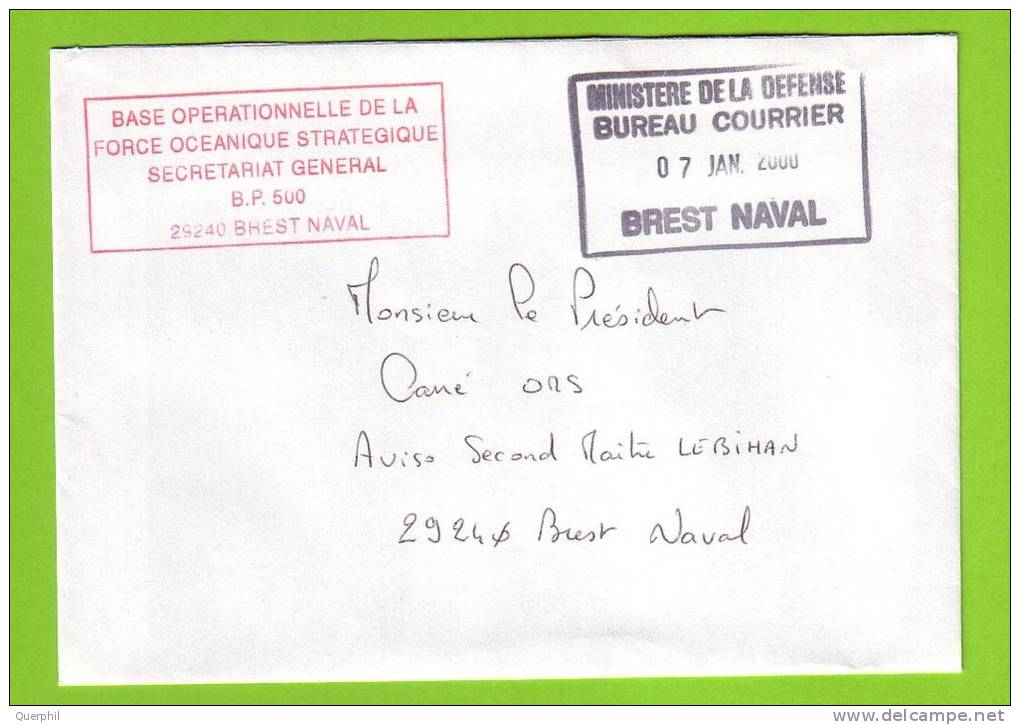 BASE OPERATIONNELLE DE LA
FORCE OCEANIQUE STRATEGIQUE
SECRETARIAT GENERAL
B.P. 500
29240 BREST NAVAL
MINISTERE DE LA DEFENSE
BUREAU COURRIER
07 JAN. 2000
BREST NAVAL
Monsieur le Président
Carré ORS
Aviso Second Maître LEBIHAN
29240 Brest Naval
Querphil
delcampe.net